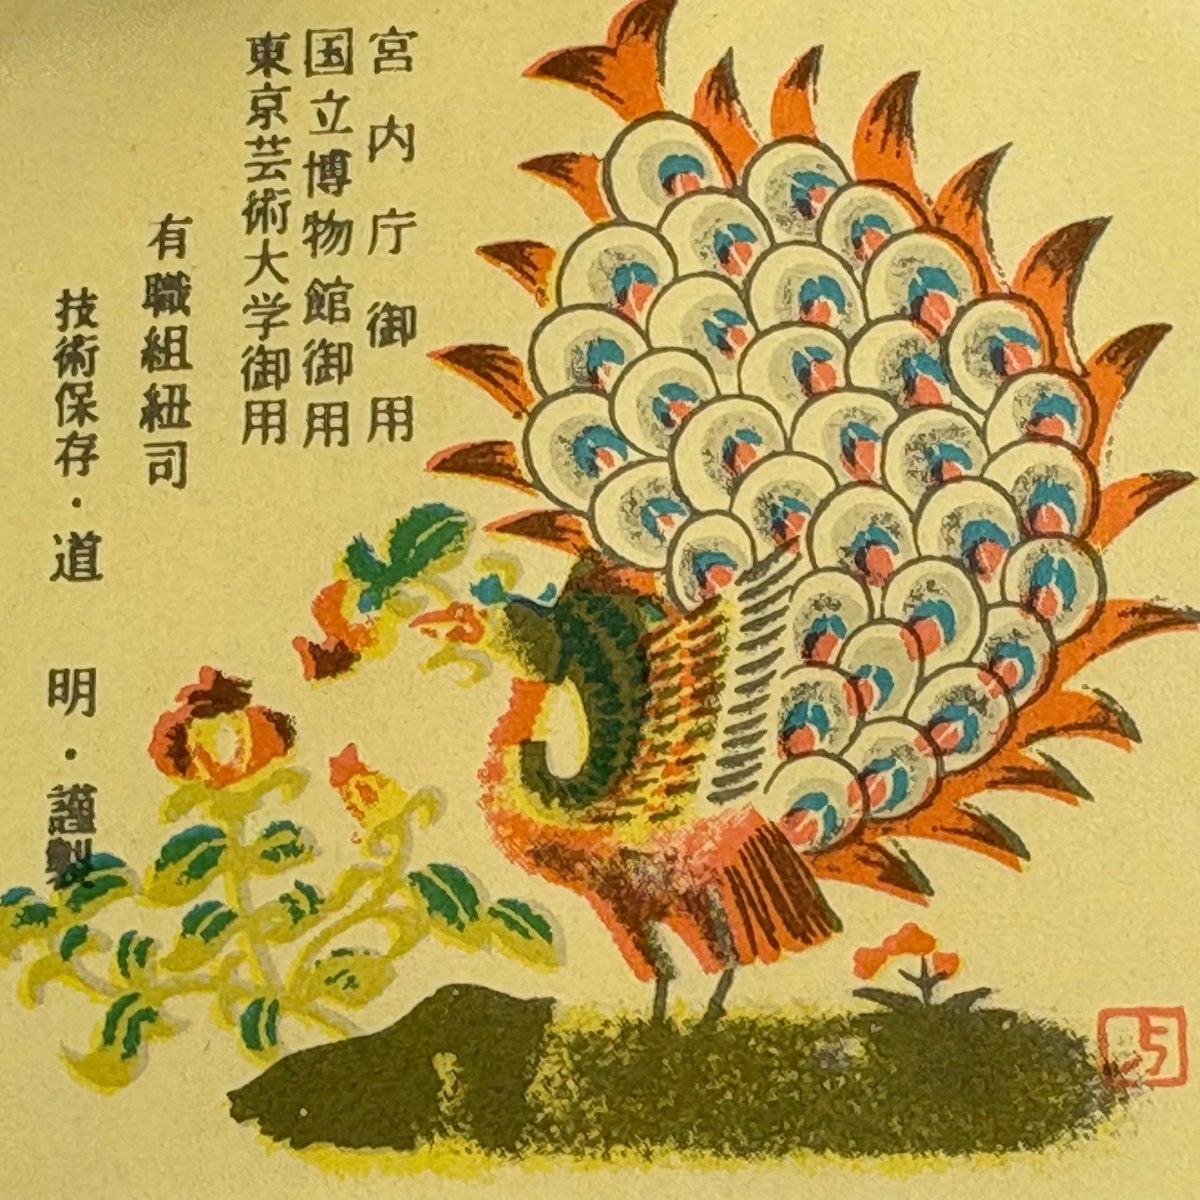 宮内庁御用
国立博物館御用
東京芸術大学御用
有職組紐司
技術保存・道明・謹製